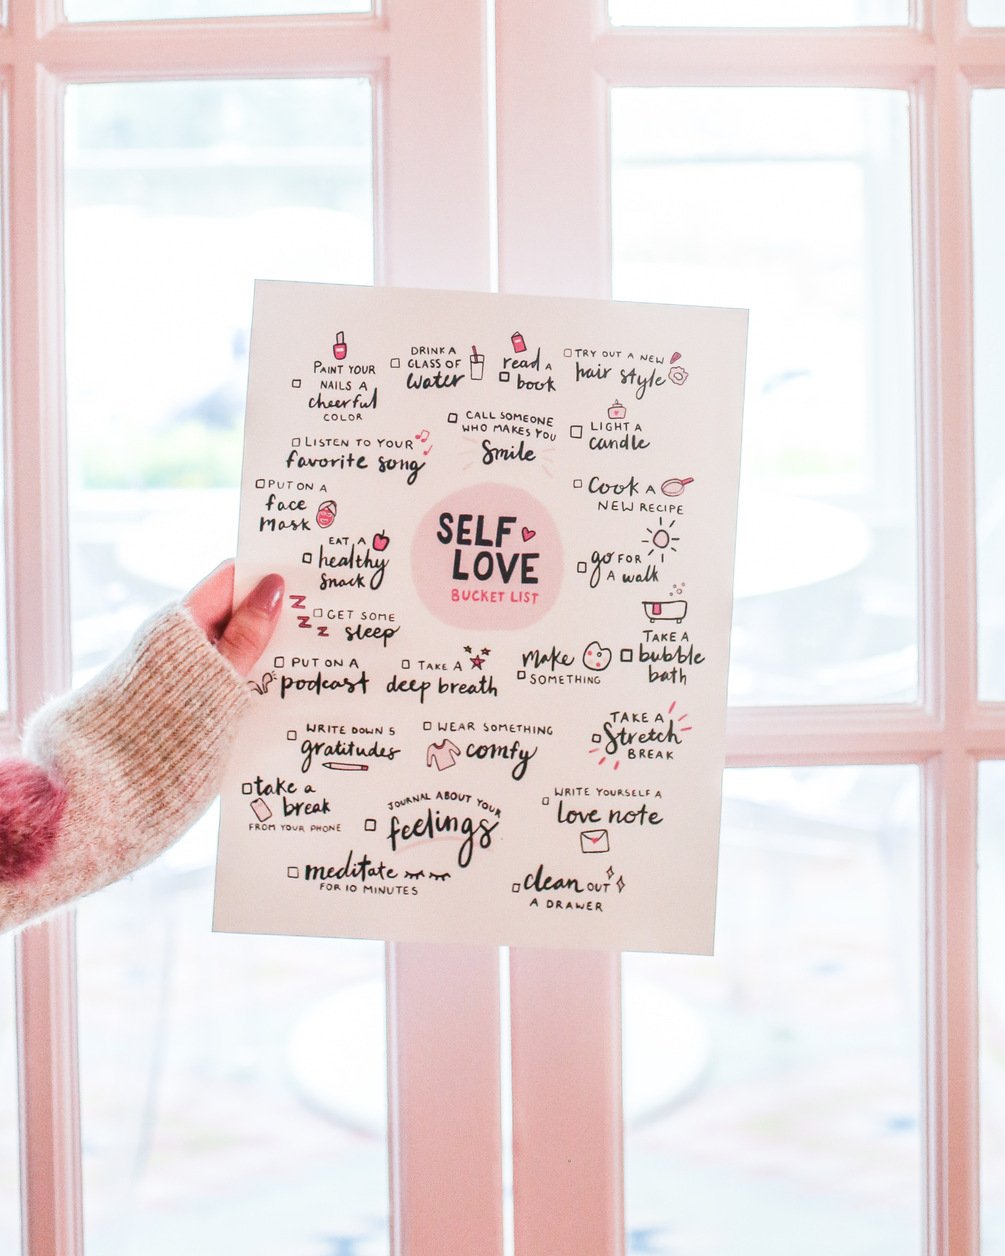 PAINT YOUR
NAILS A
cheerful
COLOR
DRINK A
GLASS OF
water
read A
book
TRY OUT A NEW
hair style
CALL SOMEONE
WHO MAKES YOU
smile
LIGHT A
candle
LISTEN TO YOUR
favorite song
PUT ON A
face
mask
COOK A
NEW RECIPE
EAT A
healthy
snack
SELF
LOVE
BUCKET LIST
go FOR
A walk
Z
Z
Z
GET SOME
sleep
TAKE A
bubble
bath
PUT ON A
podcast
TAKE A
deep breath
make
SOMETHING
WRITE DOWN 5
gratitudes
WEAR SOMETHING
comfy
TAKE A
Stretch
BREAK
take a
break
FROM YOUR PHONE
JOURNAL ABOUT YOUR
feelings
WRITE YOURSELF A
love note
meditate
FOR 10 MINUTES
clean OUT
A DRAWER